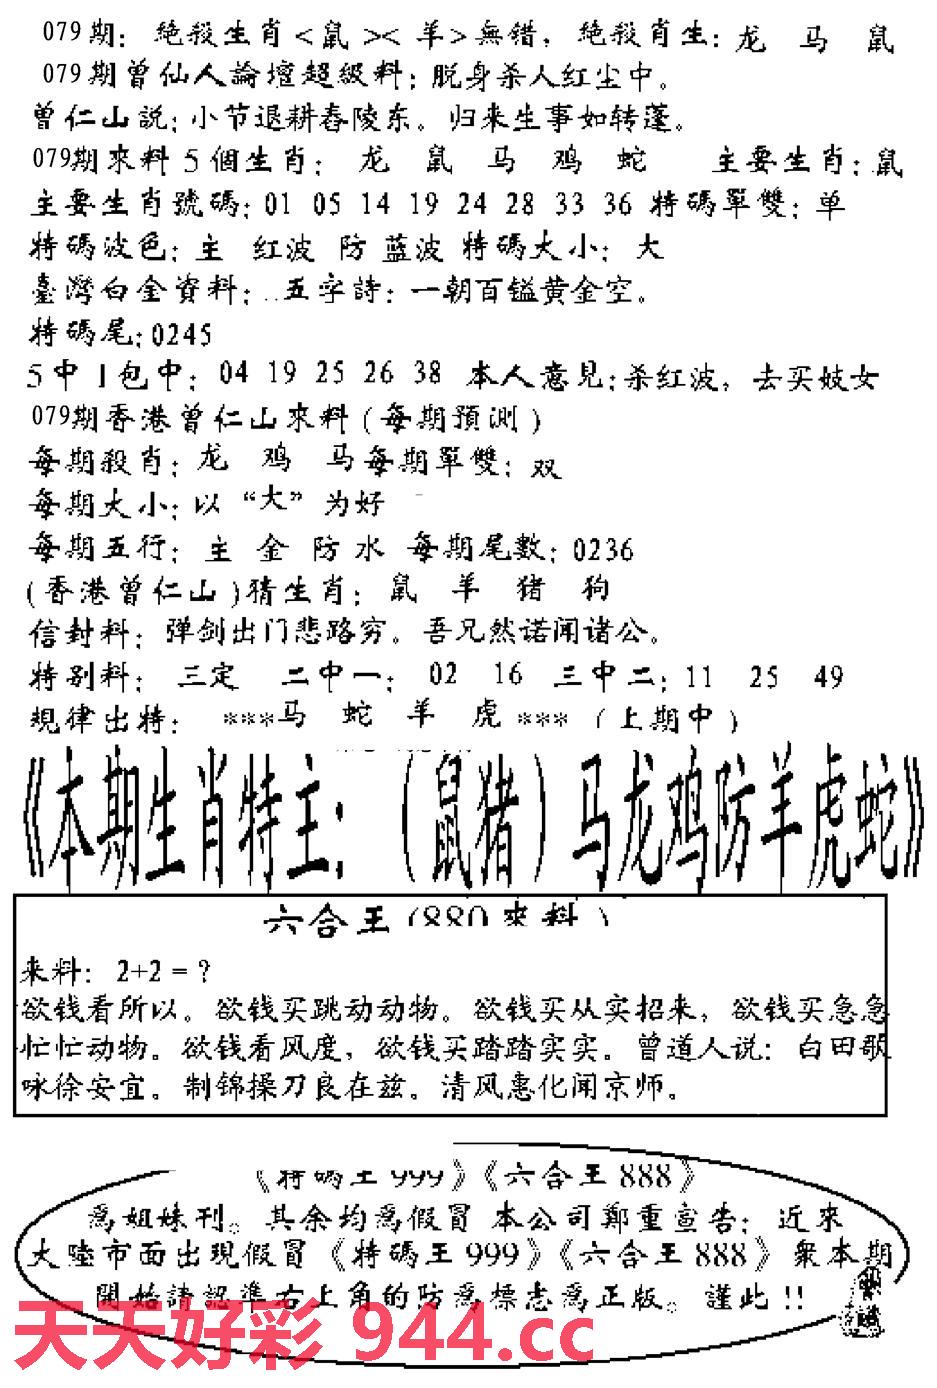 079期：絶殺生肖<鼠><羊>無错，絶殺肖生：龙 马 鼠
079期曾仙人論壇超級料：脱身杀人红尘中。
曾仁山説：小节退耕春陵东。归来生事如转蓬。
079期來料5個生肖：龙 鼠 马 鸡 蛇 主要生肖：鼠
主要生肖號碼：01 05 14 19 24 28 33 36 特碼單雙：单
特碼波色：主 红波 防 蓝波 特碼大小：大
臺灣白金資料：..五字詩：一朝百镒黄金空。
特碼尾：0245
5中1包中：04 19 25 26 38 本人意見：杀红波，去买妓女
079期香港曾仁山來料(每期預測)
每期殺肖：龙 鸡 马每期單雙：双
每期大小：以“大”为好
每期五行：主 金 防 水 每期尾數：0236
(香港曾仁山)猜生肖：鼠 羊 猪 狗
信封料：弹剑出门悲路穷。吾兄然诺闻诸公。
特别料：三定 二中一：02 16 三中二：11 25 49
規律出特：***马 蛇 羊 虎***（上期中）
《本期生肖特主：（鼠猪）马龙鸡防羊虎蛇》
六合王(880來料)
来料：2+2=？
欲钱看所以。欲钱买跳动动物。欲钱买从实招来，欲钱买急急
忙忙动物。欲钱看风度，欲钱买踏踏实实。曾道人说：白田歌
咏徐安宜。制锦操刀良在兹。清风惠化闻京师。
《特碼王999》《六合王888》
爲姐妹刊。其余均爲假冒 本公司鄭重宣告：近來
大陸市面出現假冒《特碼王999》《六合王888》衆本期
開始請認準右上角的防爲標志爲正版。謹此!!
天天好彩 944.cc